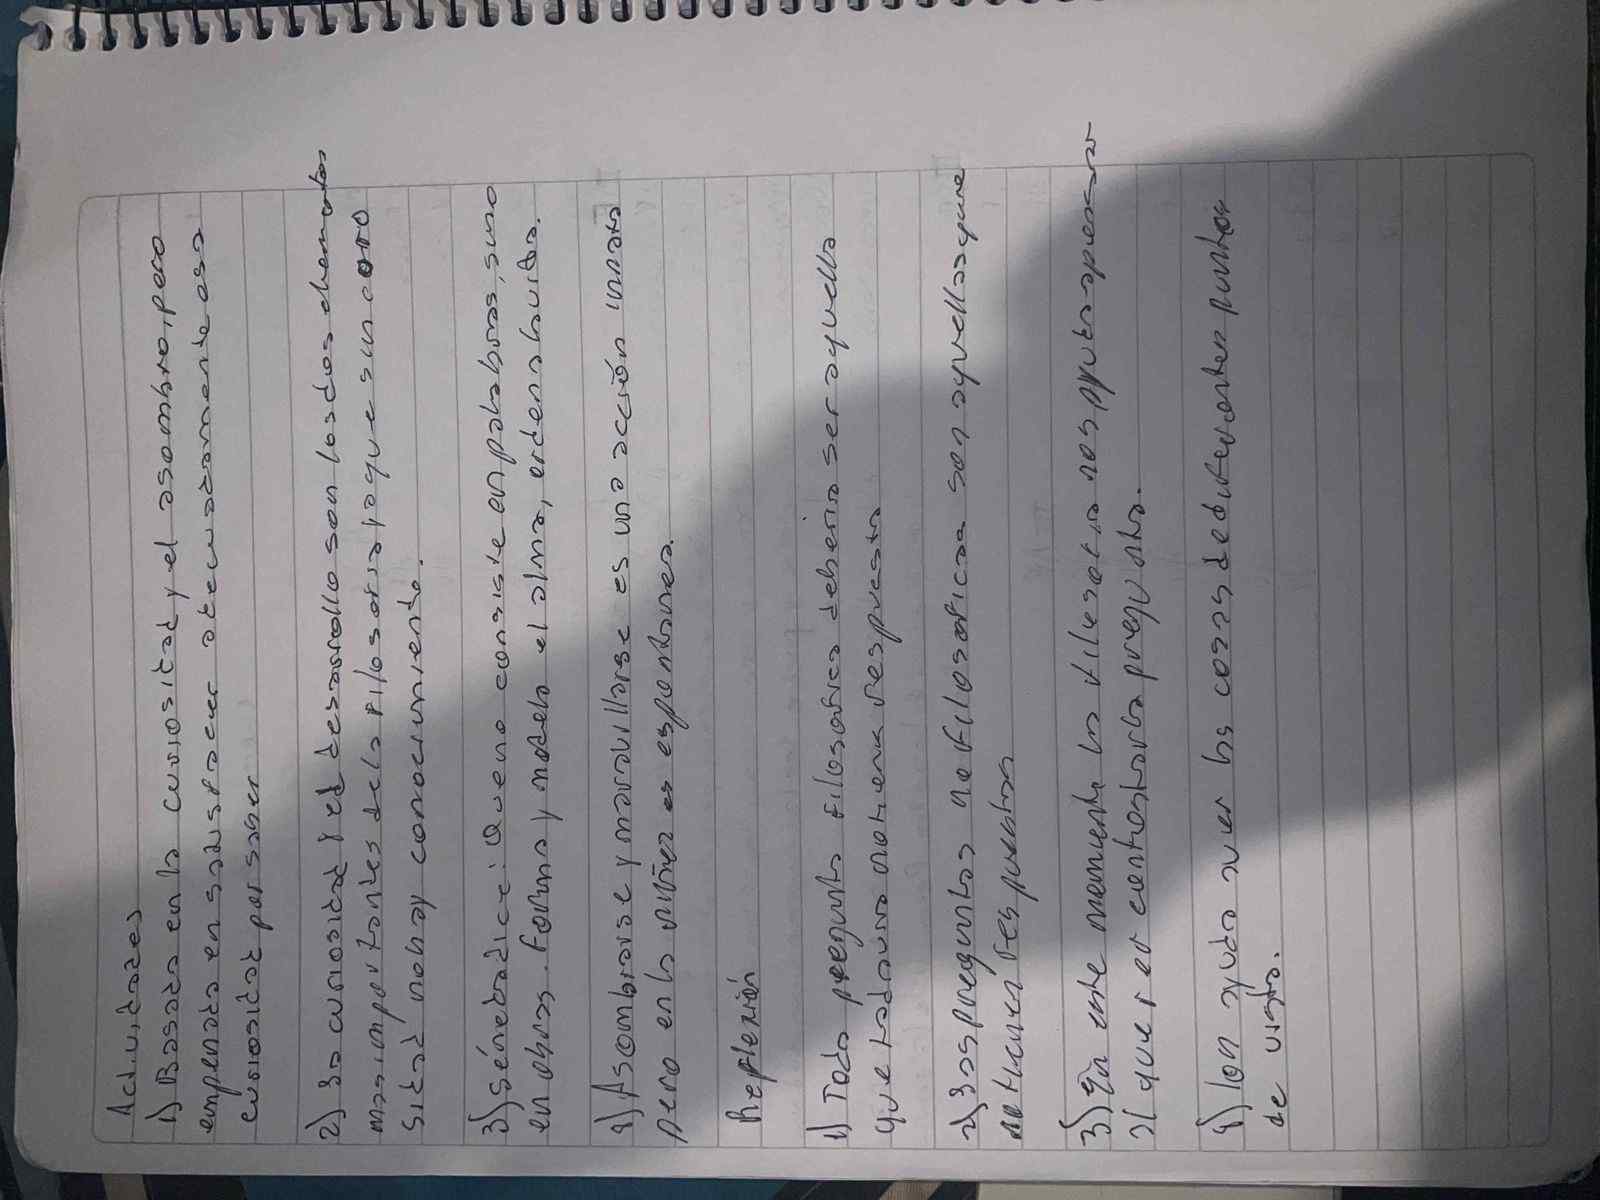 Actividades
1) Basada en la curiosidad y el asombro, pero
empeñada en satisfacer adecuadamente esa
curiosidad por saber
2) La curiosidad y el desarrollo son los dos elementos
mas importantes de la filosofia ya que sin curio
sidad no hay conocimiento.
3) Séneca dice: Que no consiste en palabras, sino
en obras. Forma y modela el alma, ordena la vida.
4) Asombrarse y maravillarse es una acción innata
pero en la niñez es espontanea.
Reflexión
1) Toda pregunta filosofica deberia ser aquella
que todavia no tiene respuesta
2) Las preguntas no filosoficas son aquellas que
no tienen respuestas
3) En este momento la filosofia nos ayuda a pensar
al querer contestar la pregunta.
4) Con ayuda a ver las cosas de diferentes puntos
de vista.